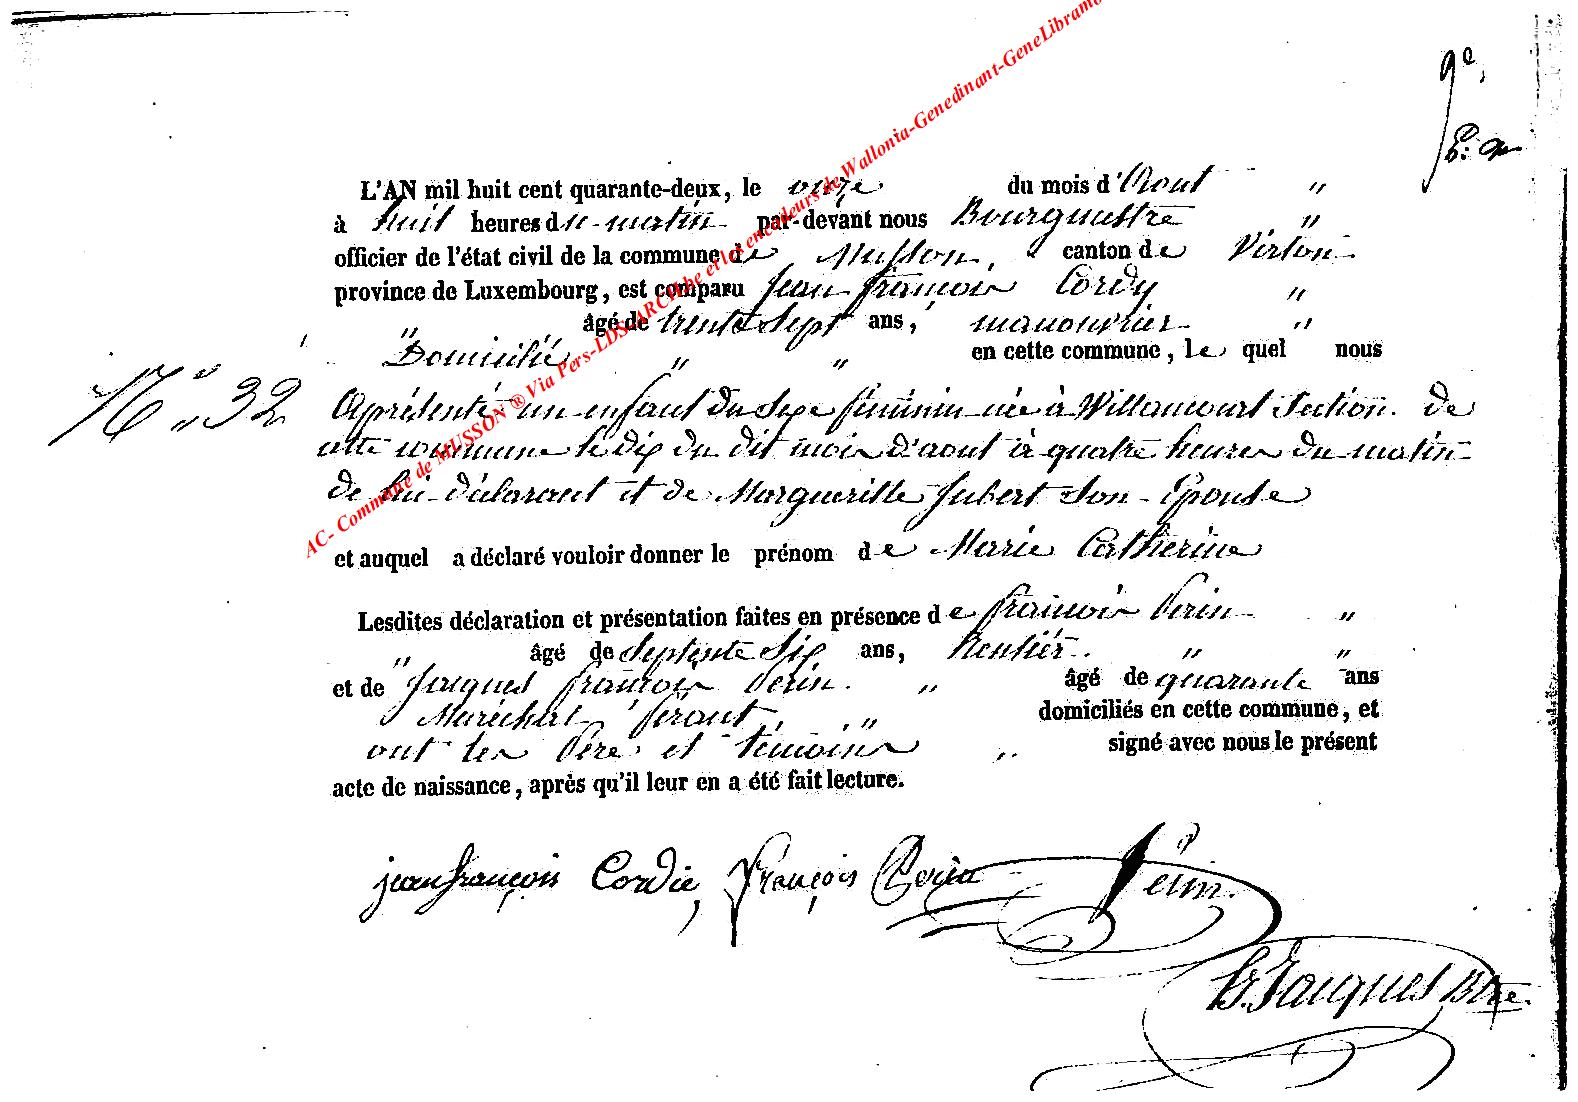 9e
L'AN mil huit cent quarante-deux, le onze du mois d'Aout "
à huit heures du matin par-devant nous Bourgmestre "
officier de l'état civil de la commune de Musson, canton de Virton
province de Luxembourg, est comparu Jean François Cordy "
" âgé de trente Sept ans, manouvrier "
Domicilié " " en cette commune, le quel nous
N° 32
a présenté un enfant du Sexe féminin née à Willancourt Section de
cette commune le dix du dit mois d'aout à quatre heures du matin
de lui déclarant et de Margueritte Jubert Son Epouse
et auquel a déclaré vouloir donner le prénom de Marie Catherine
Lesdites déclaration et présentation faites en présence de françois Perin "
" âgé de Septente Six ans, Rentier " "
et de Jacques françois Perin " âgé de quarante ans
Maréchal ferant, " domiciliés en cette commune, et
ont les Père et témoins " signé avec nous le présent
acte de naissance, après qu'il leur en a été fait lecture.
jean françois Cordie, françois Perin Perin
Jacques Btre
AC- Commune de MUSSON ® Via Pers-LDS-ARCH.be et les encodeurs de Wallonia-Genedinant-GeneLibramo